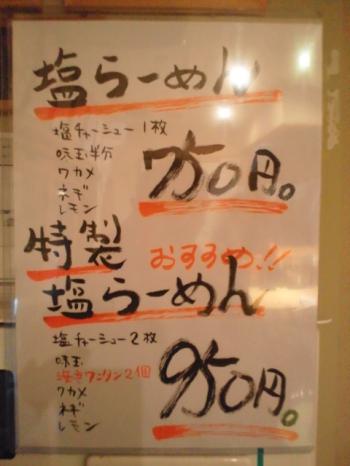 塩らーめん
塩チャーシュー1枚
味玉半分
ワカメ
ネギ
レモン
750円。
特製
おすすめ!!
塩らーめん
塩チャーシュー2枚
味玉
海老ワンタン2個
ワカメ
ネギ
レモン
950円。